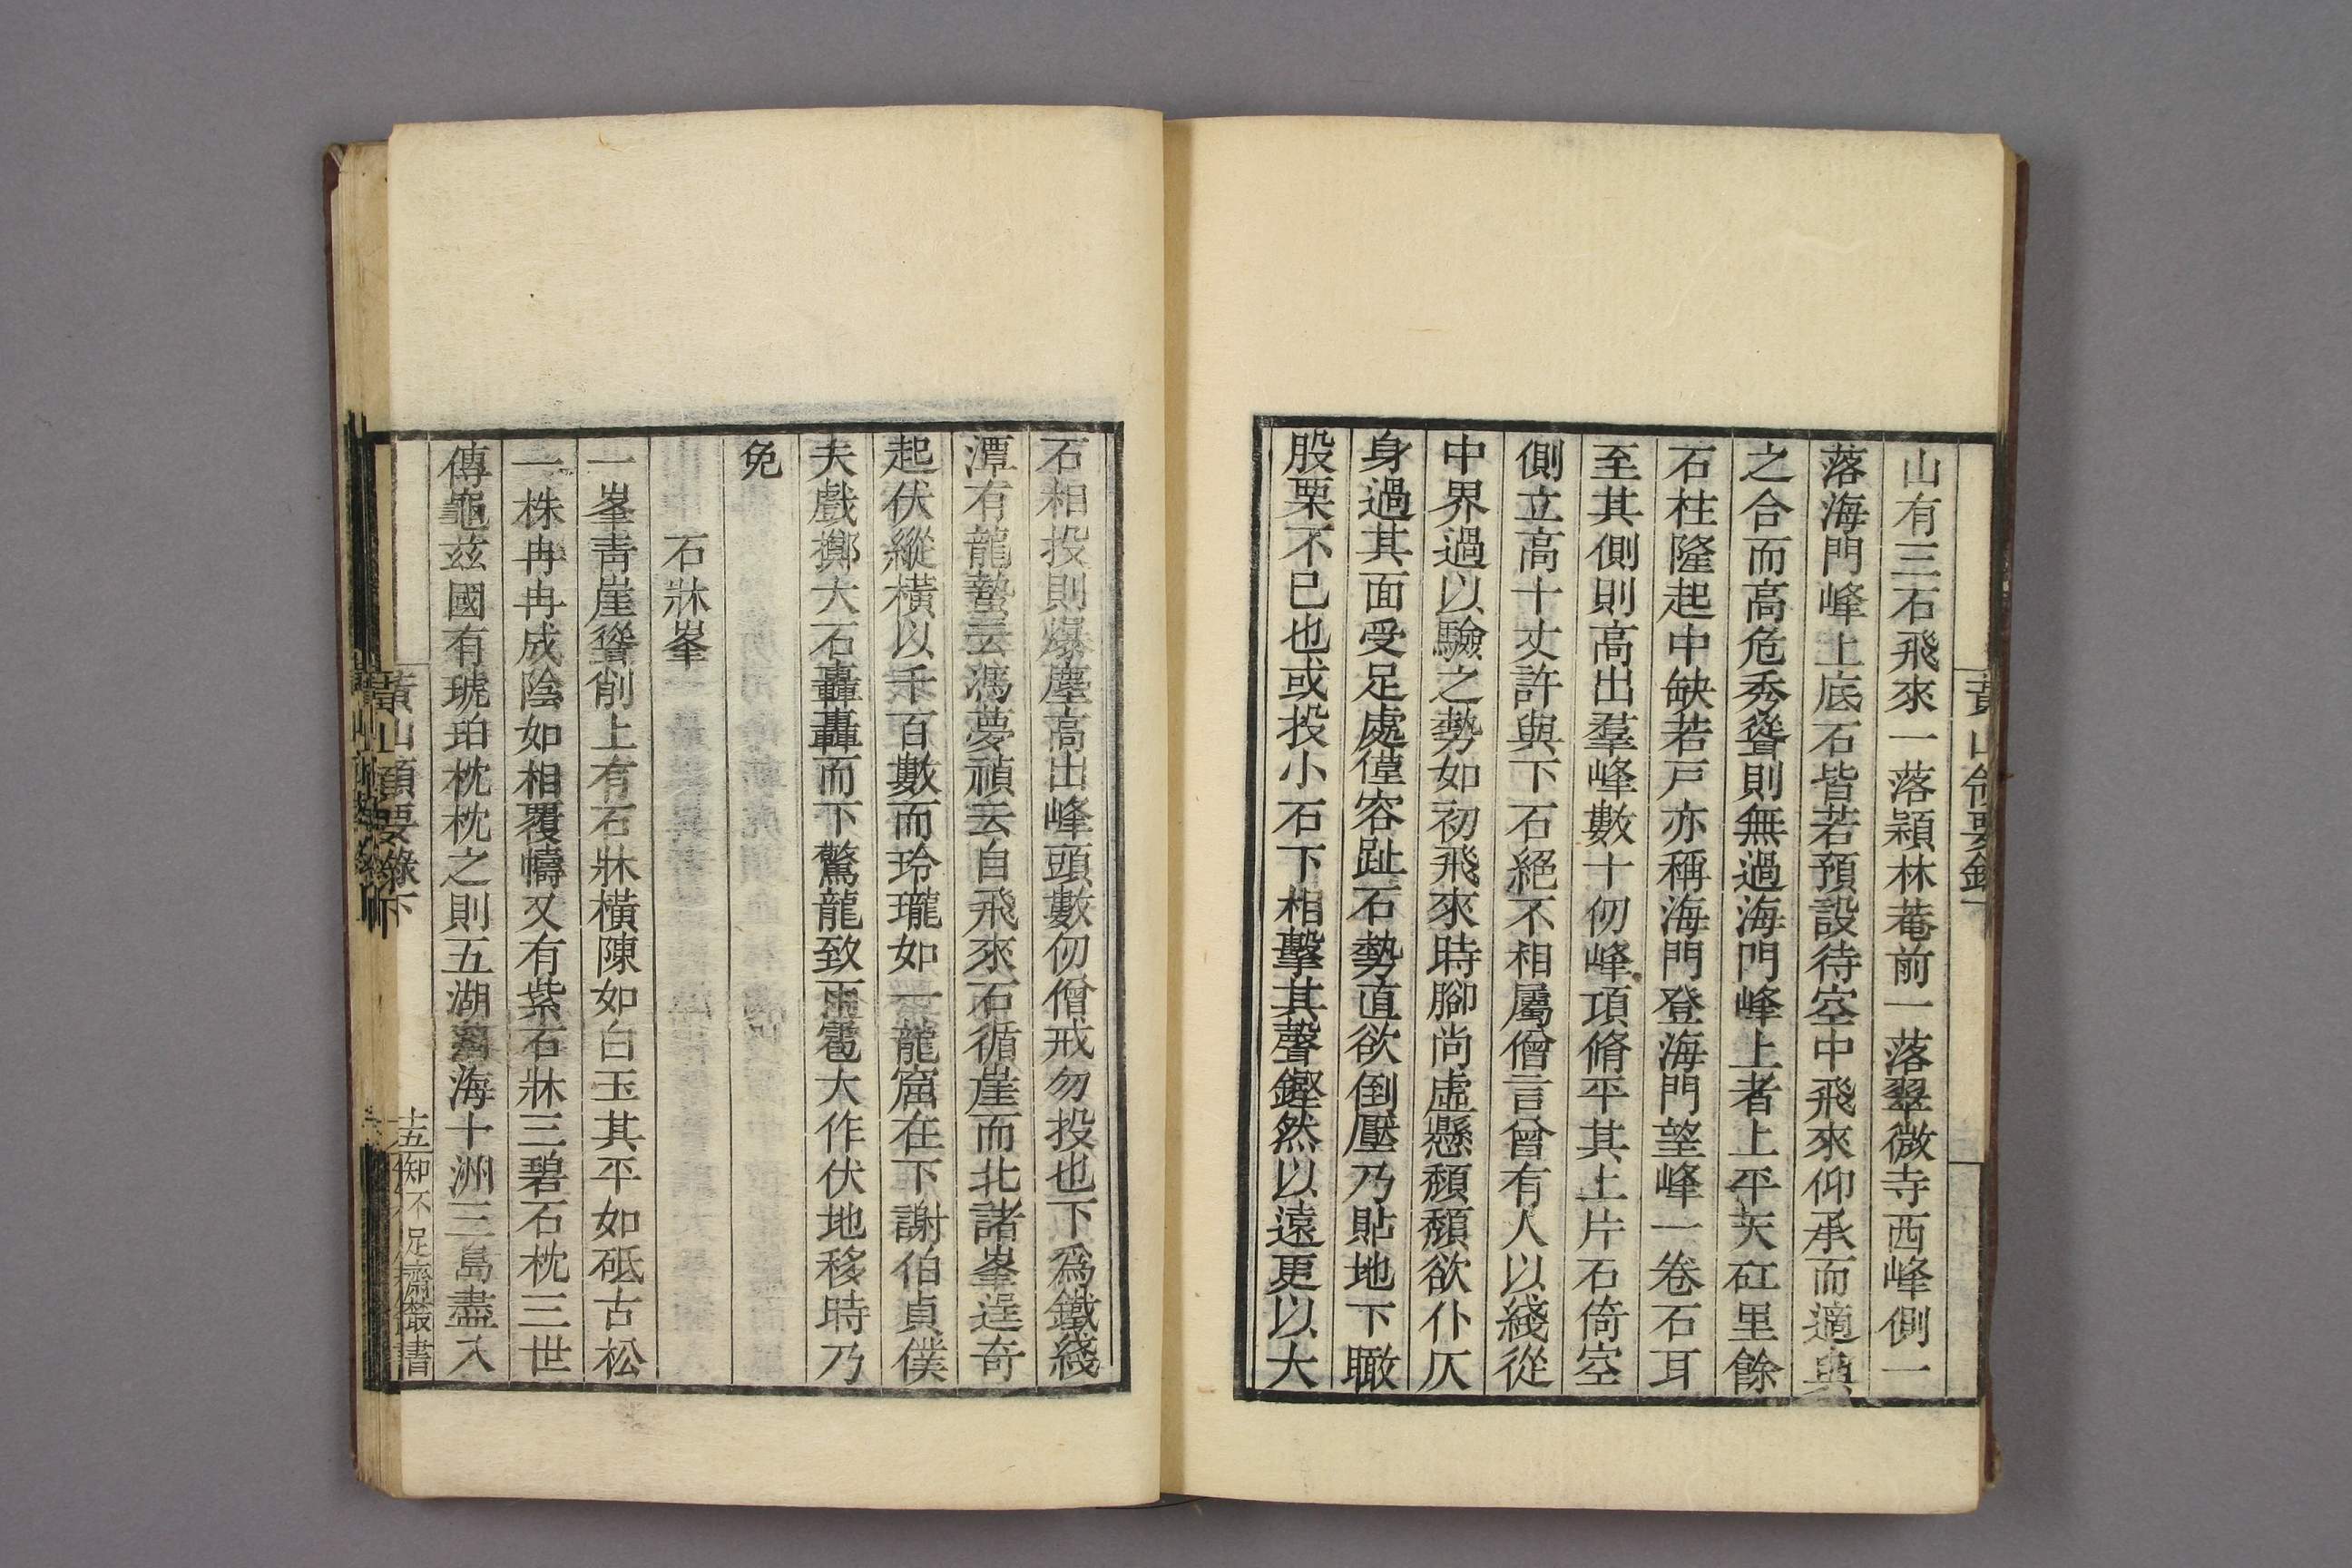 山有三石飛來一落潁林菴前一落翠微寺西峰側一
落海門峰上底石皆若預設待空中飛來仰承而適與
之合而高危秀聳則無過海門峰上者上平矢矼里餘
石柱隆起中缺若戸亦稱海門登海門望峰一卷石耳
至其側則高出羣峰數十仞峰項脩平其上片石倚空
側立高十丈許與下石絕不相屬僧言曾有人以綫從
中界過以驗之勢如初飛來時腳尚虛懸頹頹欲仆仄
身過其面受足處僅容趾石勢直欲倒壓乃貼地下瞰
股栗不已也或投小石下相擊其聲鏗然以遠更以大
石相投則爆塵高出峰頭數仞僧戒勿投也下爲鐵綫
潭有龍蟄云馮夢禎云自飛來石循崖而北諸峯逞奇
起伏縱橫以千百數而玲瓏如一龍窟在下謝伯貞僕
夫戲擲大石轟轟而下驚龍致雨雹大作伏地移時乃
免
石牀峯
一峯青崖聳削上有石牀橫陳如白玉其平如砥古松
一株冉冉成陰如相覆幬又有紫石牀三碧石枕三世
傳龜茲國有琥珀枕枕之則五湖海十洲三島盡入
黃山領要錄下
十五
知不足齋叢書